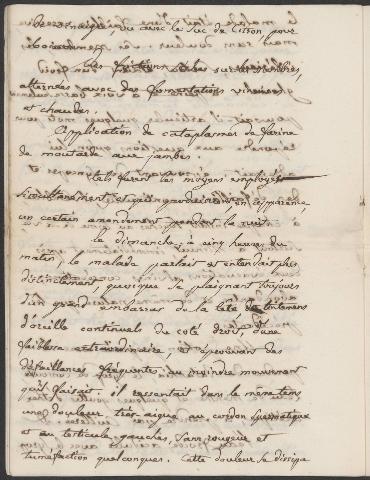 avec le suc de citron pour
boisson.
Des frictions sur les membres,
alternées avec des fomentations vineuses
et chaudes.
Application de cataplasmes de farine
de moutarde aux jambes.
Tels furent les moyens employés
et qui produisirent en apparence,
un certain amendement pendant la nuit.
le dimanche, à cinq heures du
matin, le malade parlait et entendait plus
distinctement, quoique se plaignant toujours
d'un grand embarras de la tête, de tintemens
d'oreille continuels du coté droit, d'une
faiblesse extraordinaire, et éprouvant des
défaillances fréquentes, au moindre mouvement
qu'il faisait. il ressentait dans le même tems
une douleur très aigue au cordon spermatique
et au testicule gauches, sans rougeur et
tuméfaction quelconques. Cette douleur se dissipa